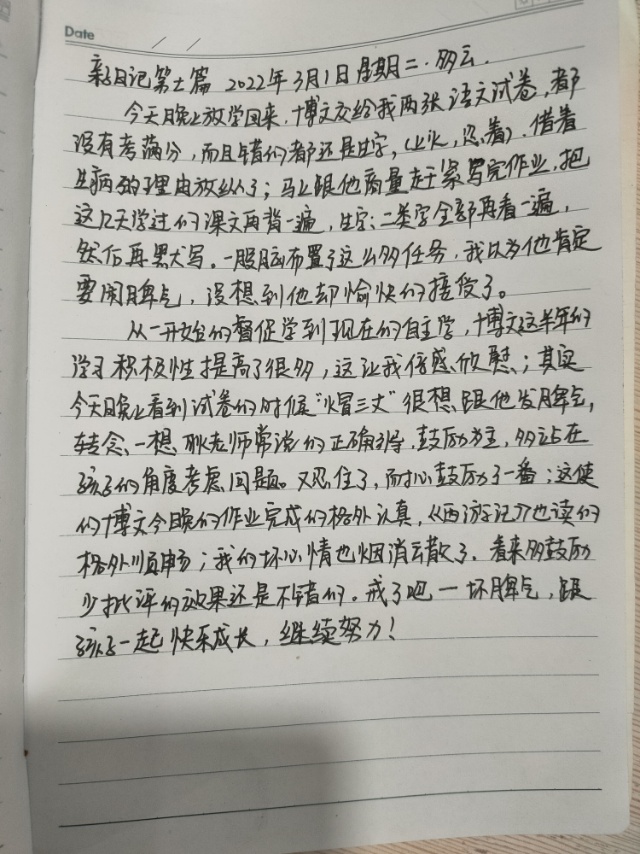 Date / /
亲子日记第七篇 2022年3月1日 星期二.多云.
今天晚上放学回来,博文交给我两张语文试卷,都
没有考满分,而且错的都还是生字,(上火,忍着).借着
生病的理由放纵了;马上跟他商量赶紧写完作业,把
这几天学过的课文再背一遍,生字;二类字全部再看一遍,
然后再默写。一股脑布置了这么多任务,我以为他肯定
要闹脾气,没想到他却愉快的接受了。
从一开始的督促学到现在的自主学,博文这半年的
学习积极性提高了很多,这让我倍感欣慰;其实
今天晚上看到试卷的时候“火冒三丈”很想跟他发脾气,
转念一想耿老师常说的正确引导,鼓励为主,多站在
孩子的角度考虑问题。又忍住了,耐心鼓励了一番;这使
的博文今晚的作业完成的格外认真,《西游记》也读的
格外顺畅;我的坏心情也烟消云散了.看来多鼓励
少批评的效果还是不错的。戒了吧—坏脾气,跟
孩子一起快乐成长,继续努力!